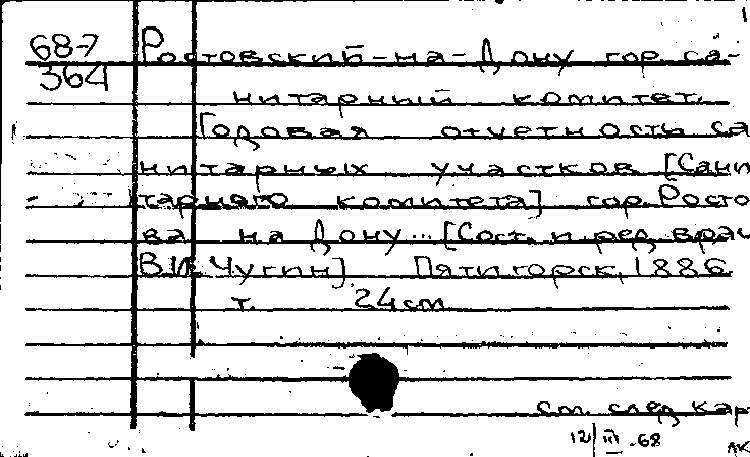 1
68-7 Ростовский-на-Дону гор. са-
364
нитарный комитет.
Годовая отчетность са
нитарных участков [Сани
тарного комитета] гор. Росто
ва на Дону... [Сост. и ред. врач
В.И. Чугин] Пятигорск, 1886
т. 24 см
см. след. кар
12/III.68
АК